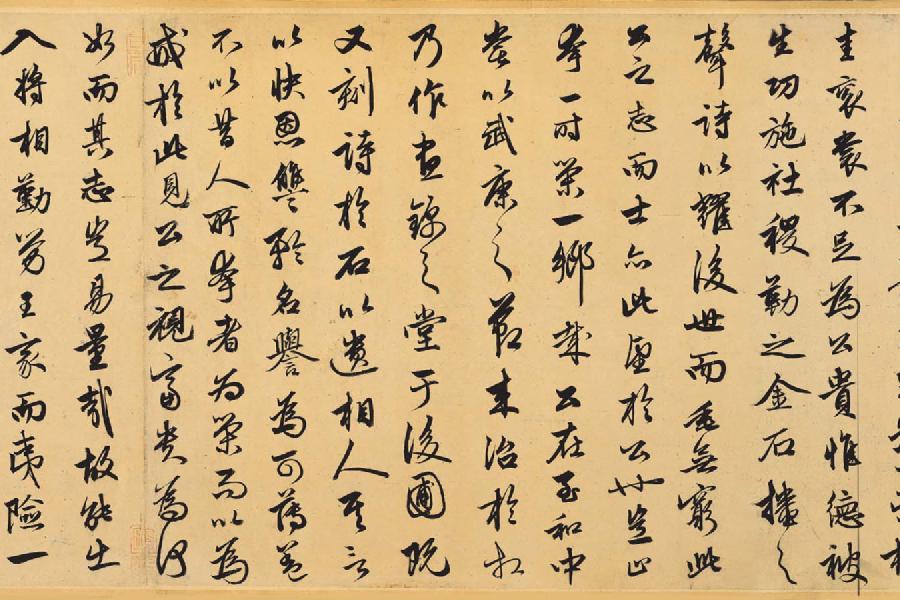 圭袞裳不足為公貴惟德被
生功施社稷勒之金石播之
聲詩以耀後世而垂無窮此
公之志而士亦此望於公也豈止
夸一時榮一鄉哉公在至和中
嘗以武康之節來治於相
乃作晝錦之堂于後圃既
又刻詩於石以遺相人其言
以快恩讎矜名譽為可薄蓋
不以昔人所夸者為榮而以為
戒於此見公之視富貴為何
如而其志豈易量哉故能出
入將相勤勞王家而夷險一